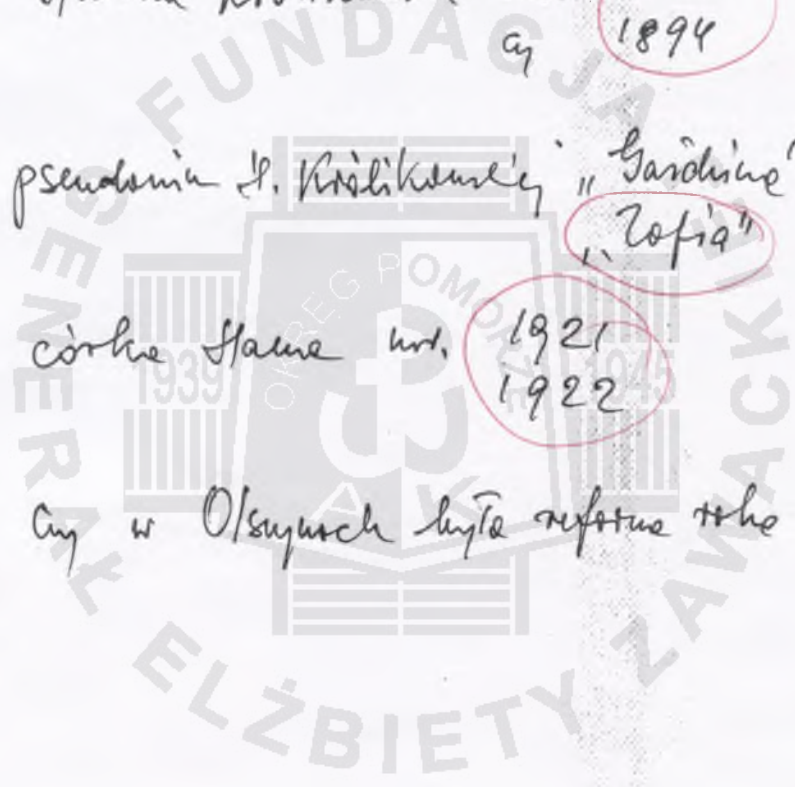 czy 1894
pseudonim H. Królikowskiej „
„Zofia"
córka Hanna ur. 1921
1922
czy w Olszynach była reforma
FUNDACJA GENERAŁ ELŻBIETY ZAWACKIEJ
OKRĘG POMORZE
1939 1945
AK